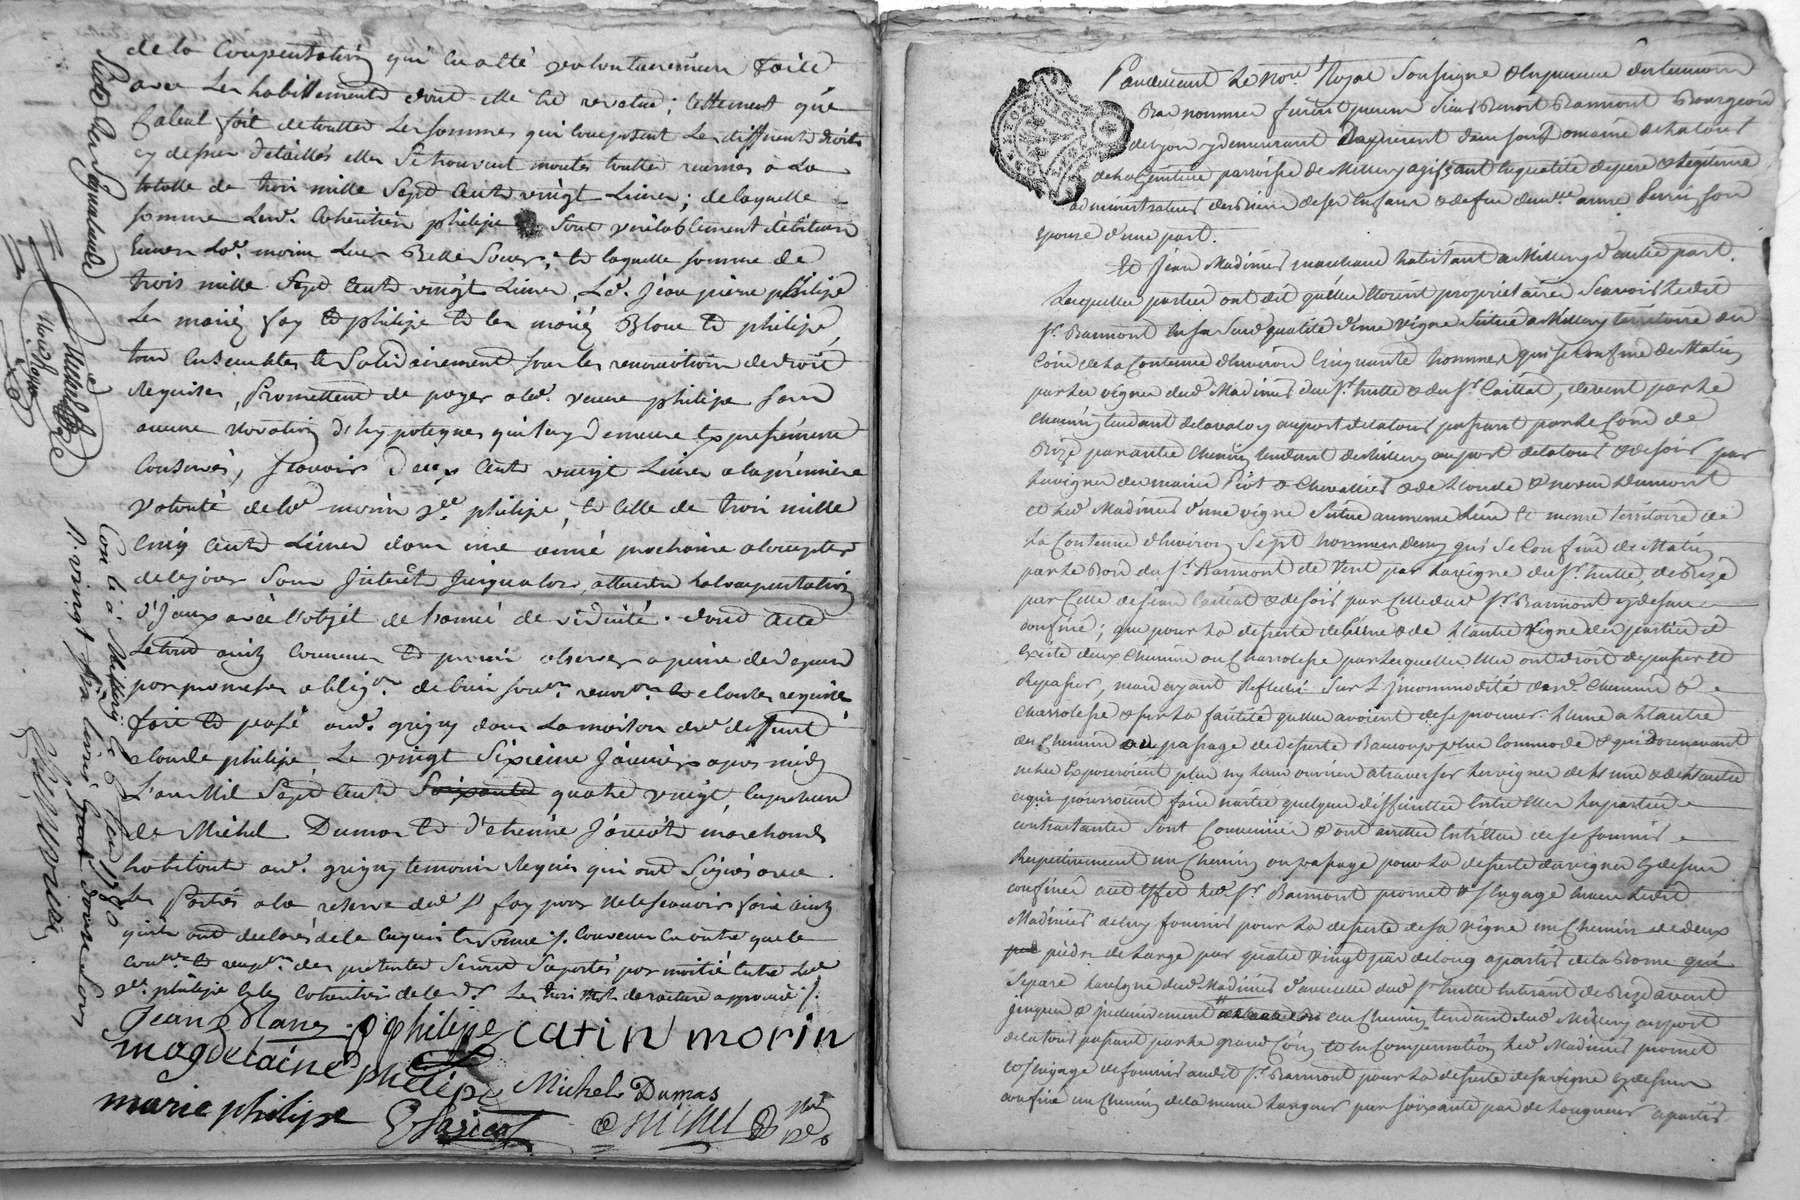 de la Compensation qui en a été volontairement faite
avec les habillements dont elle est revetue; tellement que
Calcul fait de touttes les sommes qui composent les differents droits
cy dessus detaillés elles se trouvent montés touttes reunies a la
totalle de trois mille Sept Cents vingt Livres; de laquelle
somme Lesd. Coheritiers philipe sont veritablement débiteurs
Envers Lad. morin Leur Belle Soeur, et laquelle somme de
trois mille Sept Cents vingt Livres, Led. Jean pierre philipe
Les mariés fay et philipe et les mariés Blanc et philipe,
tous ensembles et Solidairement sous les renonciations de droit
Requises, Promettent de payer a lad. veuve philipe sans
aucune novation d'hypoteques qui luy demeure Expressément
Conservés, sçavoir deux Cents vingt Livres a la premiere
volonté de lad. morin ve. philipe, et celle de trois mille
Cinq Cents Livres dans une année prochaine a compter
de ce jour Sans Interêt Jusqu'alors, attendu la Compensation
d'Jceux avec l'objet de l'année de viduité. dont acte
Le tout ainsi Convenu et promis observer a peine de depens
par promesses oblig.on de biens soum.on renon.on et clauses requises
fait et passé aud. grigny dans La maison dud. deffunt
claude philipe, Le vingt Sixieme Janvier apres midy
L'an Mil Sept Cents Soixante quatre vingt, En presence
de Michel Dumas et d'etienne Janicot marchands
habitants aud. grigny temoins Requis qui ont Signés avec
les Parties a la reserve dud. S. fay pour ne le sçavoir faire ainsi
qu'il ont declarés de ce enquis et Sommé /. Convenu en outre que le
des presentes Seront Suportés par moitié Entre lad.
ve. philipe et les Coheritiers de led. Les trois mots de rature approuvé /.
Jean Blanc P philipe catin morin
magdelaine philipe Michel Dumas
marie philipe
Con.lé a Millery le 6 fev. 1780
R. vingt six livres douze sols
Pardevant Le No.re Royal Soussigné & En presence des temoins
Bas nommés furent presens Sieur Benoit Barmont Bourgeois
de Lyon y demeurant a present dans son Domaine de la tour
paroisse de Millery agissant En qualité de pere & Legitime
administrateur des Biens de ses Enfans & de feu dem.lle anne Perrin son
epouse d'une part.
Et Jean Madinier marchand habitant a Millery d'autre part.
Lesquelles parties ont dit qu'elles Etoient proprietaires Scavoir Ledit
Sr. Barmont En sa Susd. qualité d'une vigne Scituée a Millery territoire du
Coin de la Contenue d'Environ Cinquante hommes qui se Confine de Matin
par les vignes dud. Madinier du Sr. hutte & du Sr. Caillat, de vent par le
chemin tendant de la valois au port de la tour passant par le Coin de
Bize par autre Chemin tendant de Millery au port de la tour & de soir par
la vigne de marie Piot & Chevallier & de Claude & Dumont
et led. Madinier d'une vigne Scituée au meme lieu Et meme territoire de
La Contenue d'Environ Sept hommes qui Se Confine de Matin
par le Bois du Sr. Barmont de Vent par la vigne du Sr. hutte, de Bize
par Celle de Jean Caillat & de soir par Celle dud. Sr. Barmont cy dessus
confiné; que pour La desserte de L'une & de L'autre Vigne des parties il
Existe deux Chemins ou Charroleres par Lesquelles Elles ont droit de passer Et
Repasser, mais ayant Reflechi Sur L'jncommodité desd. Chemins &
Charroleres & sur La facilité qu'elles avoient de se procurer L'une a L'autre
des Chemins ou passage de desserte Beaucoup plus Commode & qui Dorenavant
ne les Exposeroient plus ny leurs ouvriers a traverser les vignes de L'une & de L'autre
ce qui pourroient faire naitre quelques difficultes Entre Elles les parties
contractantes Sont Convenues & ont arretté Entr'Elles de se fournir
Respectivement un Chemin ou passage pour La desserte des vignes cy dessus
confinées aud Effet led. Sr. Barmont promet & s'engage Envers ledit
Madinier de luy fournir pour La desserte de sa vigne un Chemin de deux
pieds de Large par quatre vingt pas de long a partir de la Borne qui
Separe La vigne dud. Madinier d'avec celle dud. Sr. hutte tirant de Bize a vent
jusques & jnclusivement au Chemin tendant dud. Millery au port
de la tour passant par le grand Coin Et En Compensation led. Madinier promet
et s'engage de fournir audit Sr. Barmont pour La desserte de sa vigne cy dessus
confiné un Chemin de la meme largeur par soixante pas de Longueur a partir